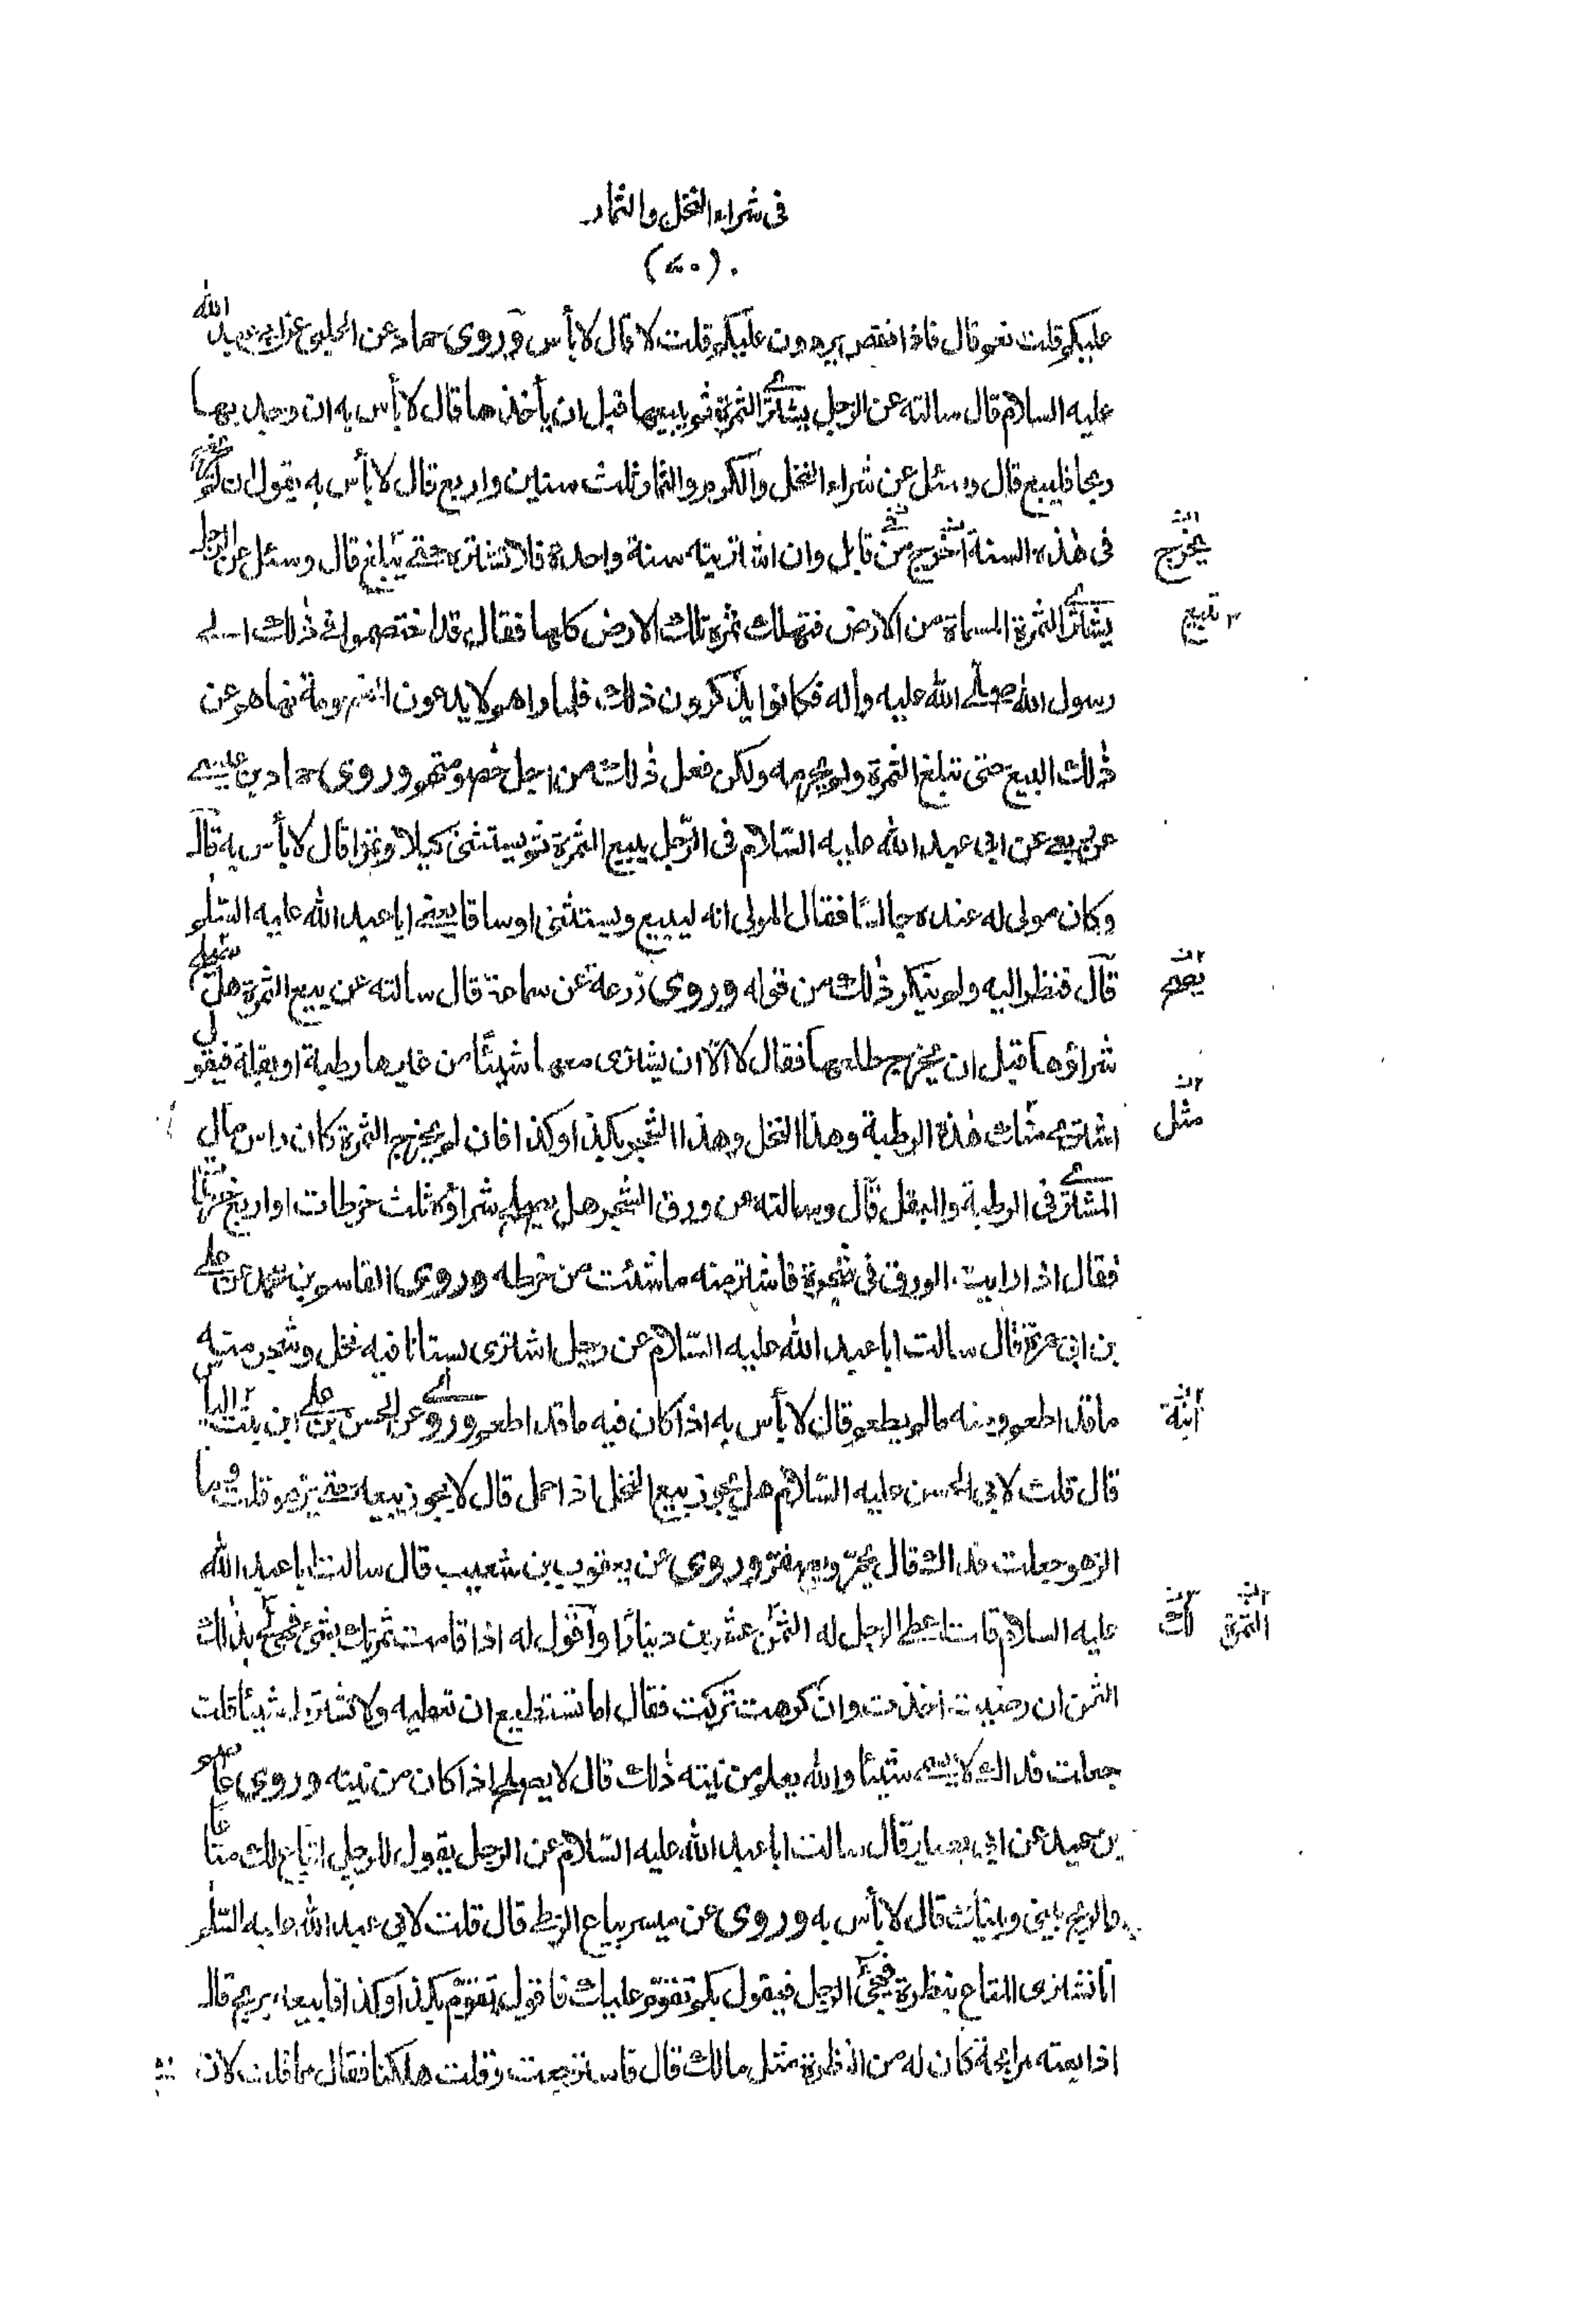 فى شراء النخل والثمار
(۷۰)
عليكم قلت نعم قال فاذا نقص يردون عليكم قلت لا قال لا بأس وروى حماد عن الحلبى عن ابى عبد الله
عليه السلام قال سالته عن الرجل يشترى الثمرة ثم يبيعها قبل ان يأخذها قال لا بأس به ان وجد بها
ربحا فليبع قال وسئل عن شراء النخل والكرم والثمار ثلث سنين واربع قال لا بأس به يقول ان لم تخرج
فى هذه السنة اخرج من قابل وان اشتريته سنة واحدة فلا تشتره حتى يبلغ قال وسئل عن الرجل
يشترى الثمرة المسماة من الارض فتهلك ثمرة تلك الارض كلها فقال قد اختصموا فى ذلك الى
رسول الله صلى الله عليه واله فكانوا يذكرون ذلك فلما راهم لا يدعون الخصومة نهاهم عن
ذلك البيع حتى تبلغ الثمرة ولم يحرمه ولكن فعل ذلك من اجل خصومتهم وروى حماد بن عيسى
عن ربعى عن ابى عبد الله عليه السلام فى الرجل يبيع الثمرة ثم يستثنى كيلا وتمرا قال لا بأس به قال
وكان مولى له عنده جالسًا فقال المولى انه ليبيع ويستثنى اوساقا يعنى ابا عبد الله عليه السلم
قال فنظر اليه ولم ينكر ذلك من قوله وروى زرعة عن سماعة قال سالته عن بيع الثمرة هل يصلح
شراؤها قبل ان يخرج طلعها فقال لا الا ان يشترى معها شيئًا من غيرها رطبة او بقلة فيقول
اشترى منك هذه الرطبة وهذا النخل وهذا الشجر بكذا وكذا فان لم يخرج الثمرة كان راس مال
المشترى فى الرطبة والبقل قال وسالته عن ورق الشجر هل يصلح شراؤه ثلث خرطات او اربع خرطات
فقال اذا رايت الورق فى شجرة فاشتر منه ما شئت من خرطه وروى القاسم بن محمد عن على
بن ابى حمزة قال سالت ابا عبد الله عليه السلام عن رجل اشترى بستانا فيه نخل وشجر منه
ما قد اطعم ومنه ما لم يطعم قال لا بأس به اذا كان فيه ما قد اطعم وروى عن الحسن بن على ابن بنت الياس
قال قلت لابى الحسن عليه السلام هل يجوز بيع النخل اذا حمل قال لا يجوز بيعه حتى يزهو قلت وما
الزهو جعلت فداك قال يحمر ويصفر وروى عن يعقوب بن شعيب قال سالت ابا عبد الله
عليه السلام قلت اعطى الرجل له الثمن عشرين دينارًا واقول له اذا قامت ثمرتك بشئ فهى لى بذلك
الثمن ان رضيت اخذت وان كرهت تركت فقال اما تستطيع ان تعطيه ولا تشترط شيئا قلت
جعلت فداك لا يسمى شيئا والله يعلم من نيته ذلك قال لا يصلح اذا كان من نيته وروى عاصم
بن حميد عن ابى بصير قال سالت ابا عبد الله عليه السلام عن الرجل يقول للرجل ابتاع لك متاعا
والربح بينى وبينك قال لا بأس به وروى عن ميسر بياع الزطى قال قلت لابى عبد الله عليه السلم
انا نشترى المتاع بنظرة فيجئ الرجل فيقول بكم تقوم عليك فاقول تقوم بكذا وكذا فابيعه بربح قال
اذا بعته مرابحة كان له من النظرة مثل مالك قال فاسترجعت وقلت هلكنا فقال مما قلت لان
يخرج
تبيع
يصح
مثل
ابنة
لك
الثمرة